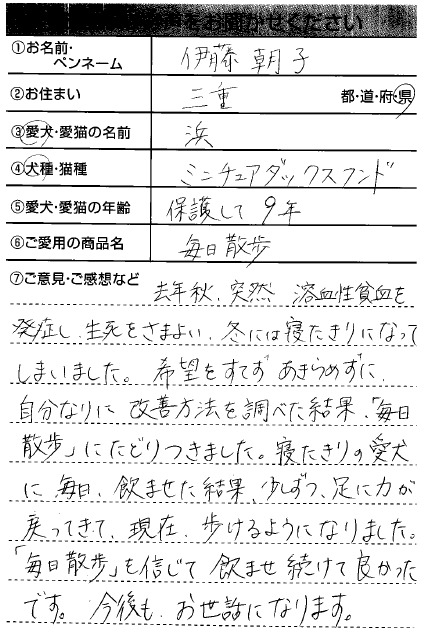 をお聞かせください
①お名前・ペンネーム 伊藤 朝子
②お住まい 三重 都・道・府・県
③愛犬・愛猫の名前 浜
④犬種・猫種 ミニチュアダックスフンド
⑤愛犬・愛猫の年齢 保護して 9年
⑥ご愛用の商品名 毎日散歩
⑦ご意見・ご感想など 去年秋、突然 溶血性貧血を
発症し、生死をさまよい、冬には寝たきりになって
しまいました。希望をすてず あきらめずに、
自分なりに 改善方法を調べた結果、「毎日
散歩」にたどりつきました。寝たきりの愛犬
に 毎日、飲ませた結果、少しずつ、足に力が
戻ってきて、現在、歩けるようになりました。
「毎日散歩」を信じて 飲ませ続けて良かった
です。今後も、お世話になります。